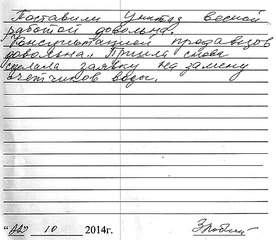 Поставили Унитаз весной
работой довольна.
Консультацией продавцов
довольна. Пришла снова
сделала заявку на замену
счетчиков воды.
"22" 10 2014г.